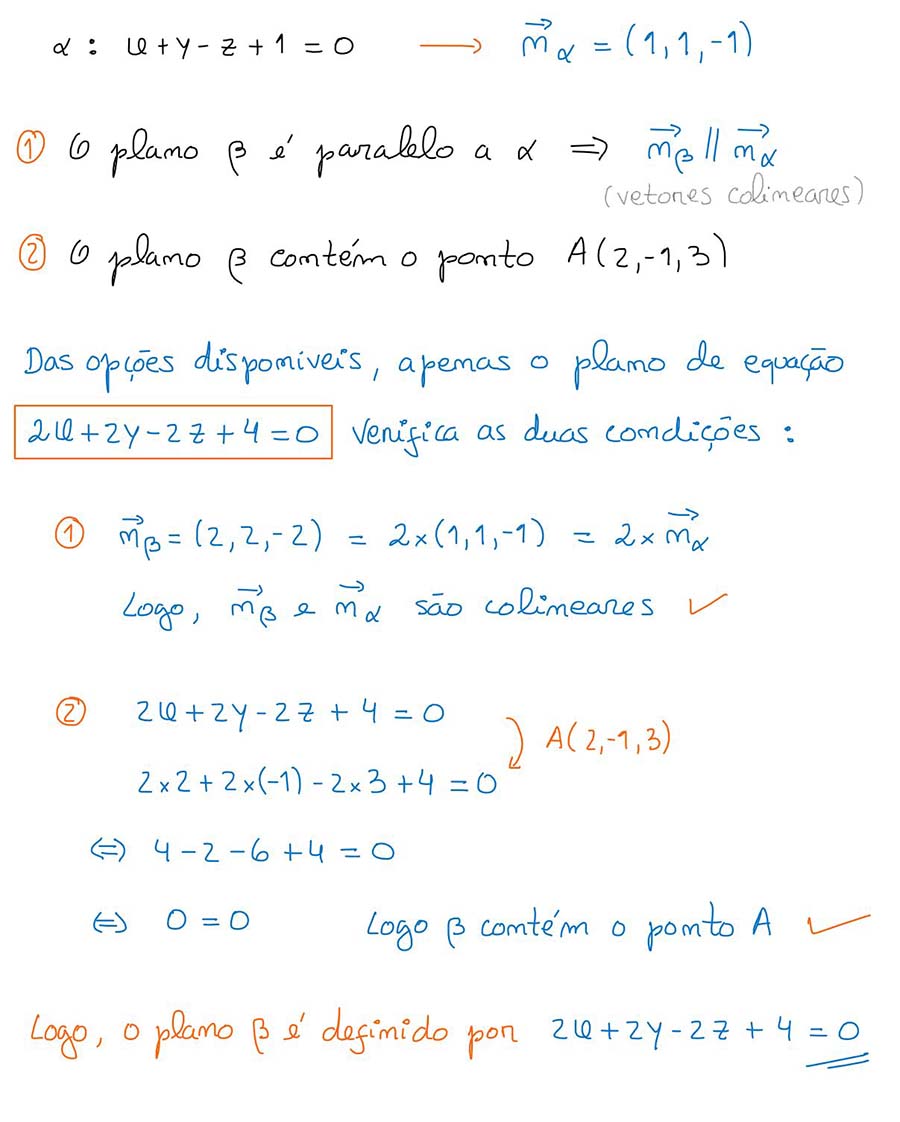 α : x + y - z + 1 = 0 → n⃗α = (1, 1, -1)
① O plano β é paralelo a α ⇒ n⃗β // n⃗α
(vetores colineares)
② O plano β contém o ponto A(2, -1, 3)
Das opções disponíveis, apenas o plano de equação
2x + 2y - 2z + 4 = 0 verifica as duas condições :
① n⃗β = (2, 2, -2) = 2×(1, 1, -1) = 2× n⃗α
Logo, n⃗β e n⃗α são colineares ✓
② 2x + 2y - 2z + 4 = 0
A(2, -1, 3)
2×2 + 2×(-1) - 2×3 + 4 = 0
⇔ 4 - 2 - 6 + 4 = 0
⇔ 0 = 0 Logo β contém o ponto A ✓
Logo, o plano β é definido por 2x + 2y - 2z + 4 = 0